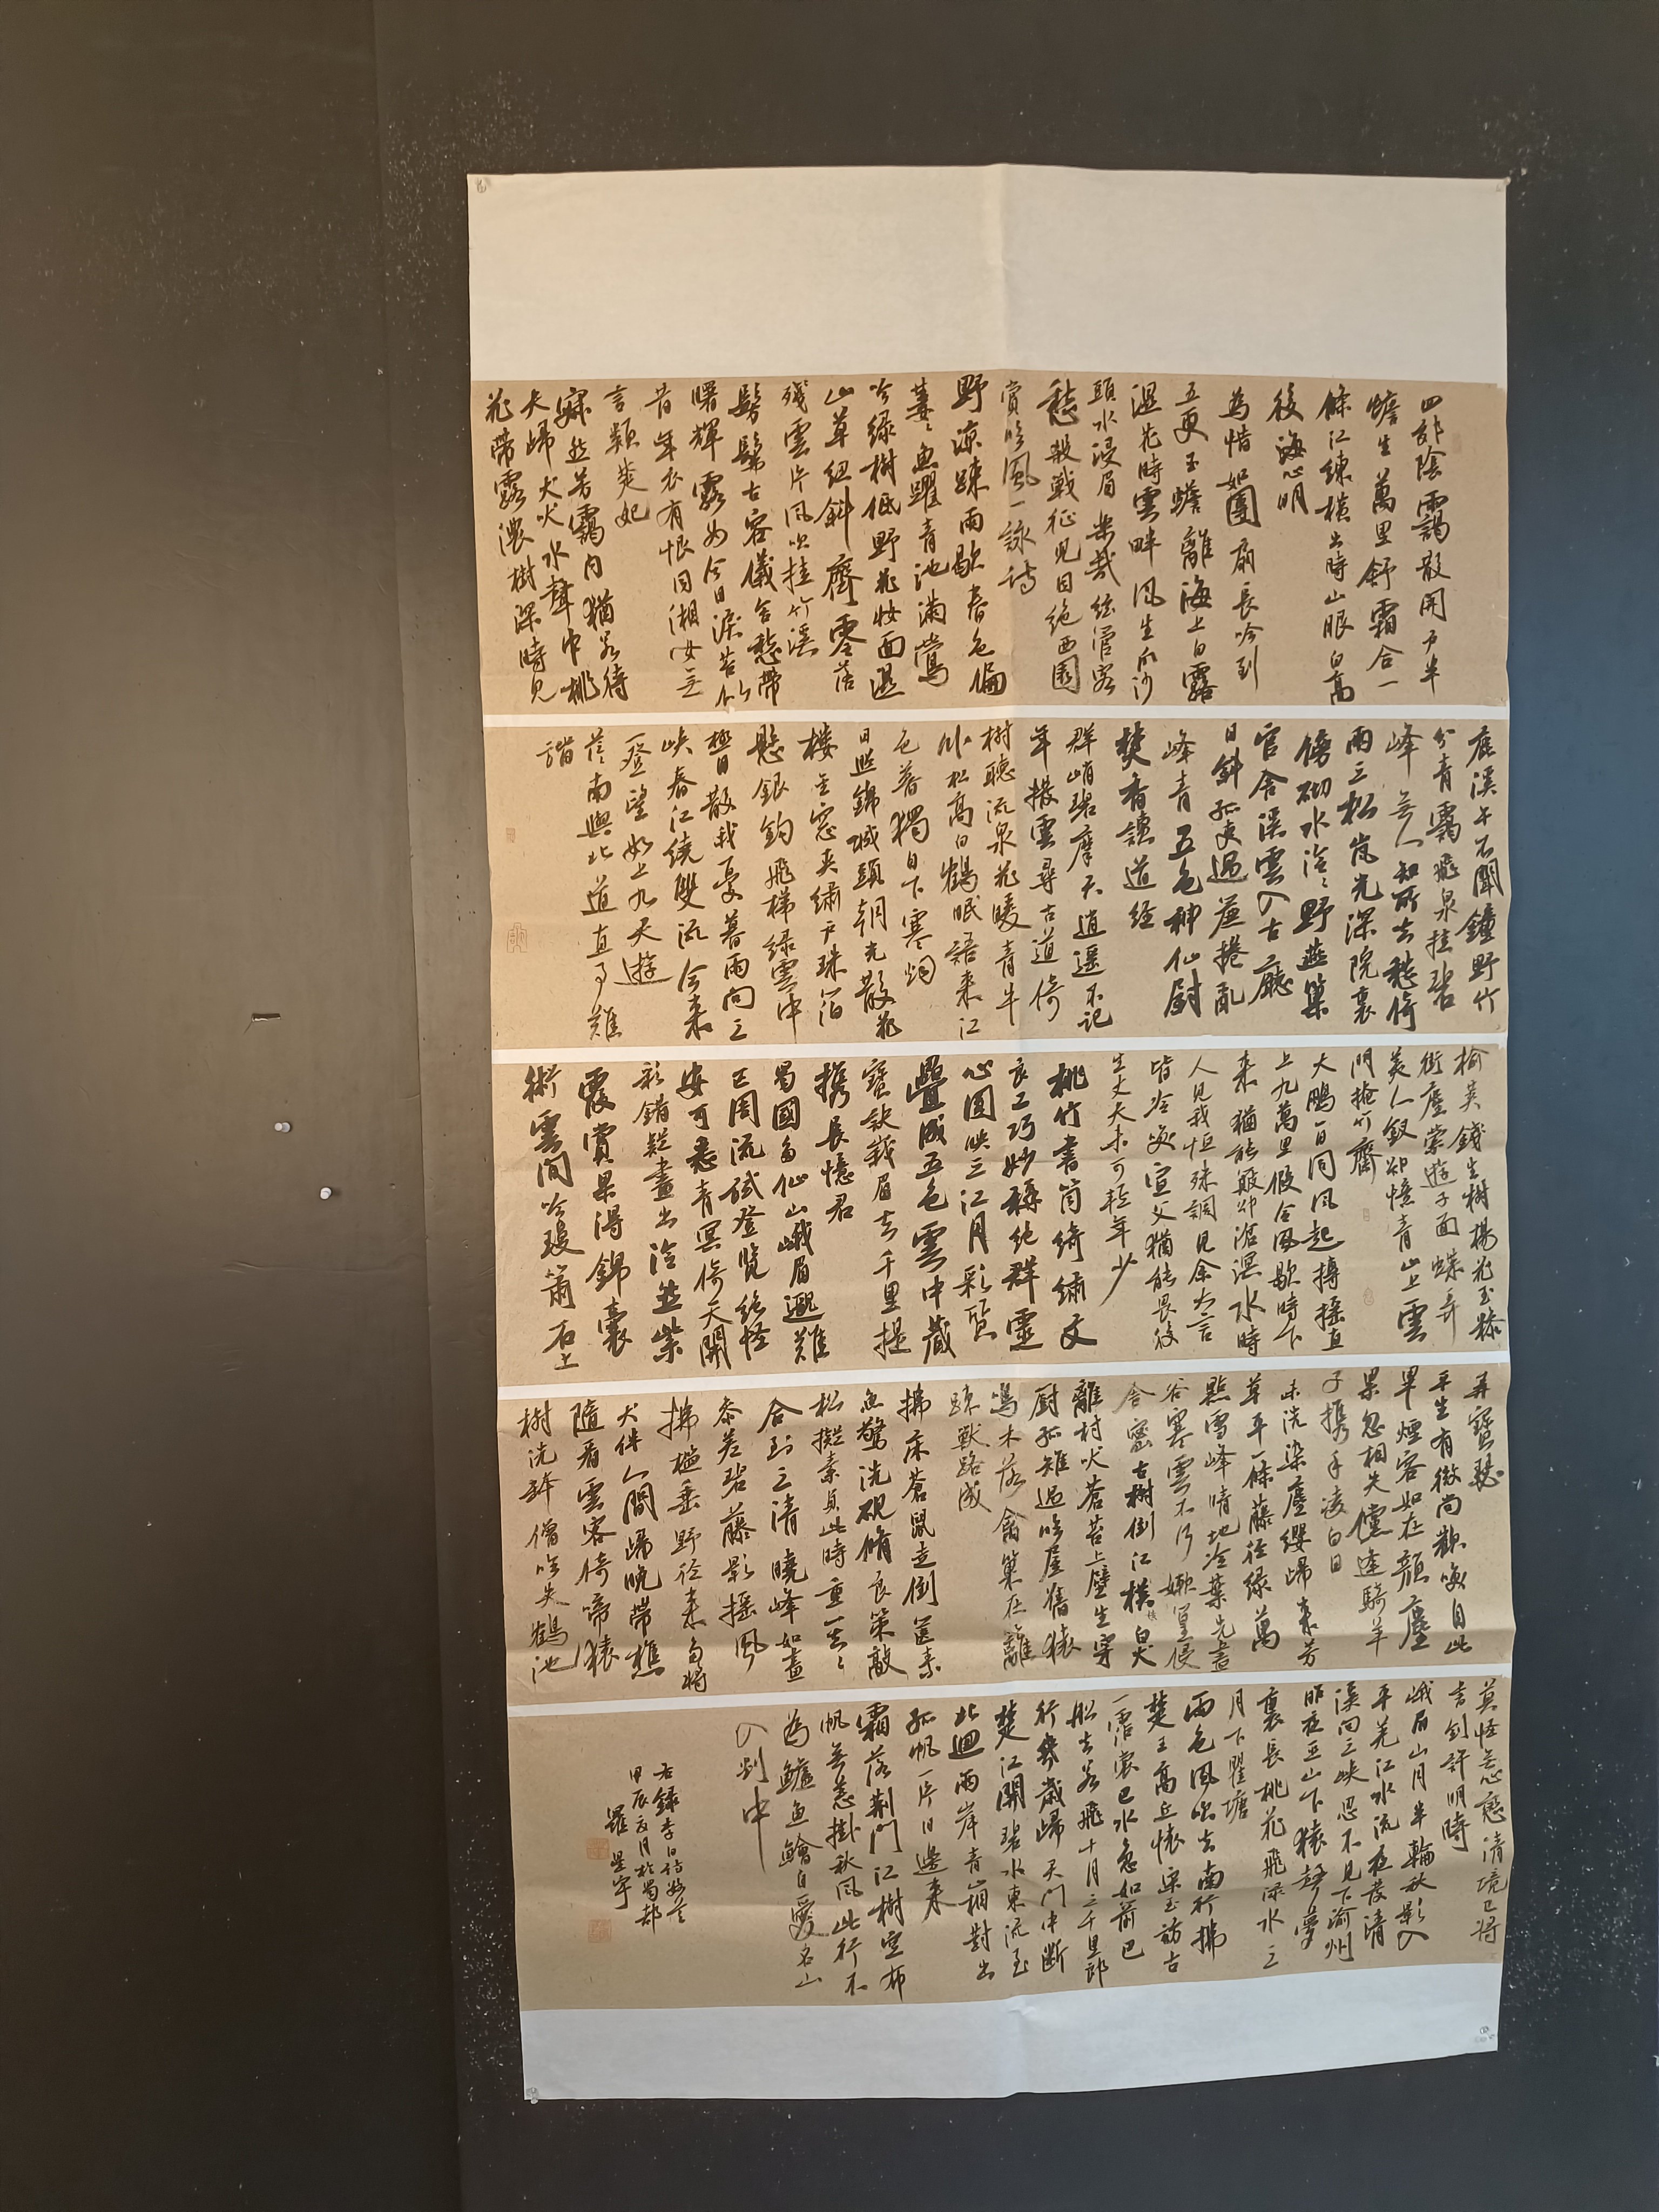 四郊陰靄散開戶半
蟾生萬里舒霜合一
條江練橫出時山眼白高
後海心明
為惜如團扇長吟到
五更玉蟾離海上白露
濕花時雲畔風生爪沙
頭水浸眉樂哉絃管客
愁殺戰征兒因絕西園
賞臨風一詠詩
野涼疎雨歇春色偏
萋〻魚躍青池滿鶯
吟綠樹低野花妝面濕
山草紐斜齊零落
殘雲片風吹挂竹溪
髣髴古容儀含愁帶
曙輝露如今日淚苔似
昔年衣有恨同湘女無
言類楚妃
寂然芳靄內猶若待
夫歸犬吠水聲中桃
花帶露濃樹深時見
鹿溪午不聞鐘野竹
分青靄飛泉挂碧
峰無人知所去愁倚
兩三松嵐光深院裏
傍砌水泠〻野燕巢
官舍溪雲入古廳
日斜孤吏過簾捲亂
峰青五色神仙尉
焚香讀道經
群峭碧摩天逍遥不記
年撥雲尋古道倚
樹聽流泉花暖青牛
臥松高白鶴眠語來江
色暮獨自下寒烟
日照錦城頭朝光散花
樓金窗夾繡戶珠箔
懸銀鉤飛梯綠雲中
極目散我憂暮雨向三
峽春江繞雙流今來
一登望如上九天遊
茫茫南與北道直事難
諧
榆莢錢生樹楊花玉糝
街塵縈遊子面蝶弄
美人釵卻憶青山上雲
門掩竹齋
大鵬一日同風起摶搖直
上九萬里假令風歇時下
來猶能簸卻滄溟水時
人見我恒殊調見余大言
皆冷笑宣父猶能畏後
生丈夫未可輕年少
桃竹書筒綺繡文
良工巧妙稱絕群靈
心圓映三江月彩質
疊成五色雲中藏
寶訣峨眉去千里提
攜長憶君
蜀國多仙山峨眉邈難
匹周流試登覽絕怪
安可悉青冥倚天開
彩錯疑畫出泠然紫
霞賞果得錦囊
術雲間吟瓊簫石上
弄寶瑟
平生有微尚歡笑自此
畢煙容如在顏塵
累忽相失儻逢騎羊
子攜手凌白日
未洗染塵纓歸來芳
草平一條藤徑綠萬
點雪峰晴地冷葉先盡
谷寒雲不行嫩篁侵
舍密古樹倒江橫白犬
離村吠蒼苔上壁生穿
廚孤雉過臨屋舊猿
鳴木落禽巢在籬
疎獸路成
拂床蒼鼠走倒篋素
魚驚洗硯脩良策敲
松擬素貞此時重一去〻
合到三清曉峰如畫
參差碧藤影搖風
拂檻垂野徑來多將
犬伴人間歸晚帶樵
隨看雲客倚啼猿
樹洗缽僧臨失鶴池
莫怪無心戀清境已將
書劍許明時
峨眉山月半輪秋影入
平羌江水流夜發清
溪向三峽思不見下渝州
昨夜巫山下猿聲夢
裏長桃花飛淥水三
月下瞿塘
雨色風吹去南行拂
楚王高丘懷宋玉訪古
一霑裳巴水急如箭巴
船去若飛十月三千里郎
行幾歲歸天門中斷
楚江開碧水東流至
北迴兩岸青山相對出
孤帆一片日邊來
霜落荆門江樹空布
帆無恙掛秋風此行不
為鱸魚鱠自愛名山
入剡中
右錄李白詩數首
甲辰友月於蜀都
羅星宇